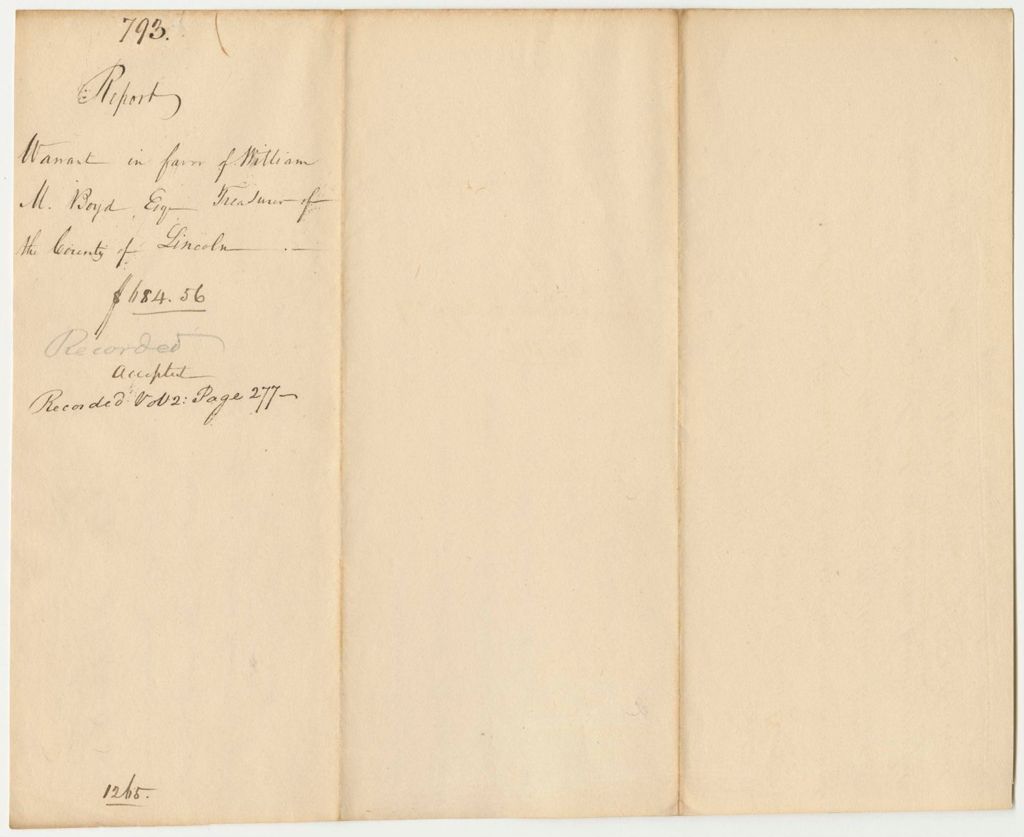 793.
Report
Warrant in favor of William
M. Boyd Esqr Treasurer of
the County of Lincoln
$684.56
Recorded
accepted
Recorded Vol 2: Page 277
1265.